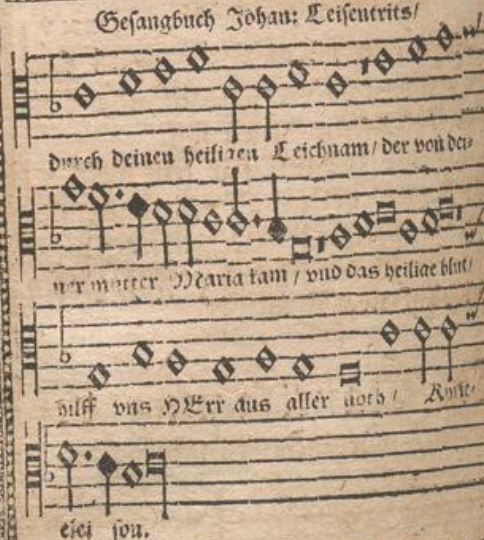 Gesangbuch Johan: Leisentrits/
durch deinen heiligen Leichnam/ der von dei-
ner mutter Maria kam/ vnd das heilige blut/
hilff vns HErr aus aller noth/ Kyrie-
elei son.